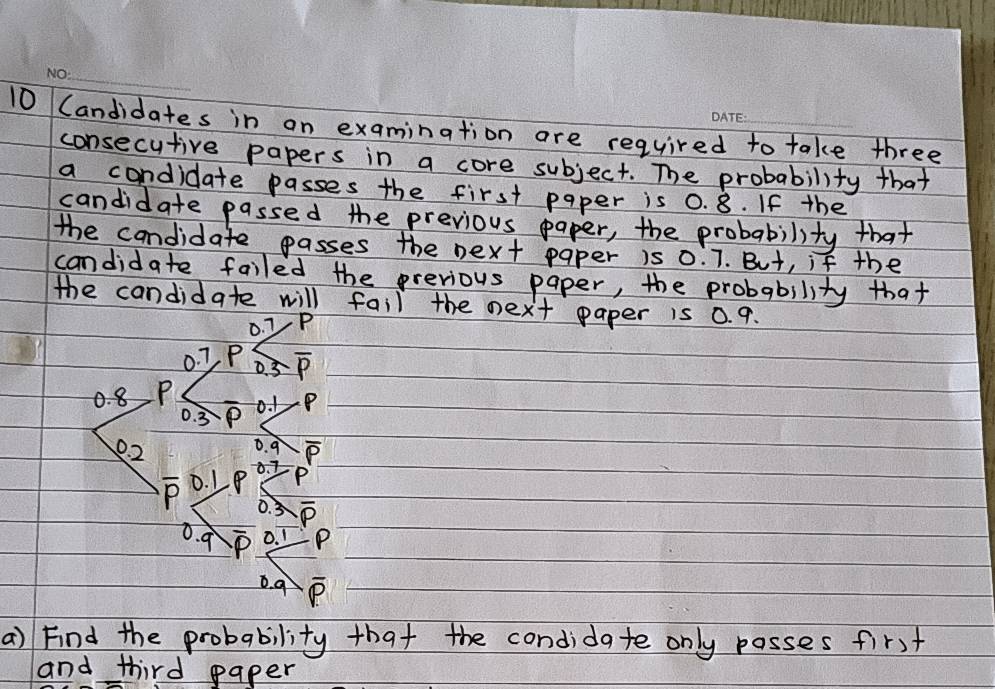 NO:
DATE:
10 Candidates in an examination are required to take three
consecutive papers in a core subject. The probability that
a candidate passes the first paper is 0.8. If the
candidate passed the previous paper, the probability that
the candidate passes the next paper is 0.7. But, if the
candidate failed the previous paper, the probability that
the candidate will fail the next paper is 0.9.
0.7 P
0.7 P 0.3 P̅
0.8 P
0.3 P̅ 0.1 P
0.2 0.9 P̅
P̅ 0.1 P 0.7 P
0.3 P̅
0.9 P̅ 0.1 P
0.9 P̅
a) Find the probability that the candidate only passes first
and third paper